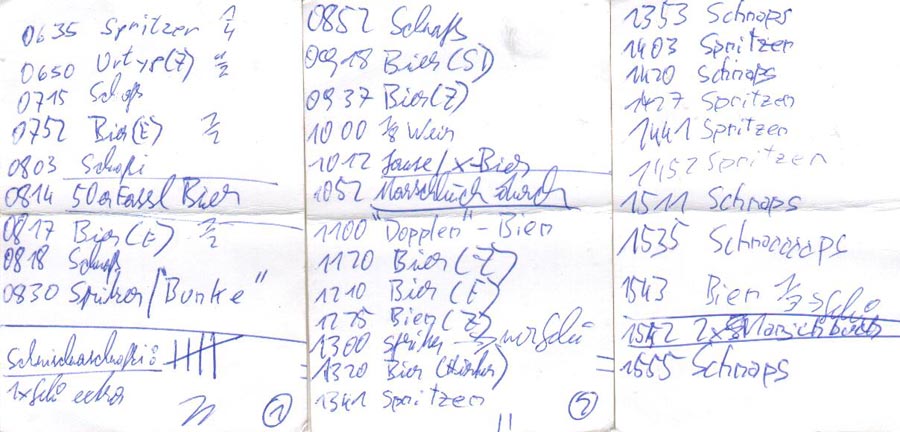 0635 Spritzer 1/4
0650 Urtyp(Z) 1/2
0715 Schnaps
0752 Bier(E) 1/2
0803
0814 50er Fassl Bier
0817 Bier(E) 1/2
0818 Schnaps
0830 Spritzer/"Bunke"
1x
1
0852 Schnaps
0918 Bier(S)
0937 Bier(Z)
1000 1/8 Wein
1012 Jause/x-Bier
1052 Marschbuch durch
1100 "Doppler" - Bier
1120 Bier(Z)
1210 Bier(E)
1225 Bier(Z)
1300 Spritzer
1320 Bier
1341 Spritzer
2
1353 Schnaps
1403 Spritzer
1420 Schnaps
1427 Spritzer
1441 Spritzer
1452 Spritzer
1511 Schnaps
1535 Schnaaaaps
1543 Bier 1/3
1542 2x Marschbuch
1555 Schnaps